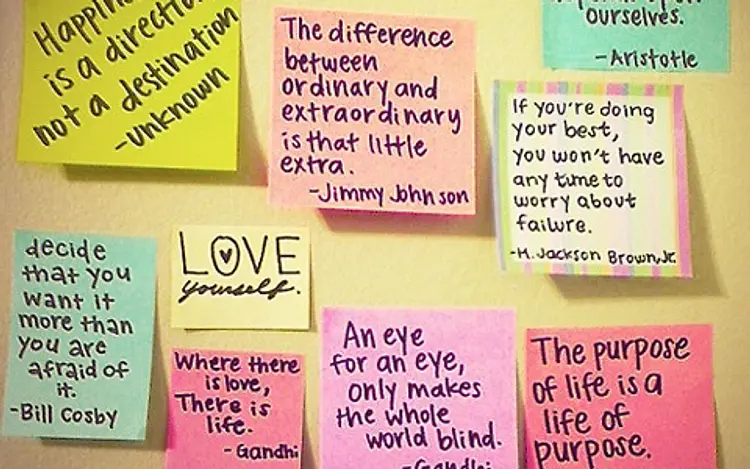 is a direction
not a destination
-unknown
The difference
between
ordinary and
extraordinary
is that little
extra.
-Jimmy Johnson
ourselves.
-Aristotle
If you're doing
your best,
you won't have
any time to
worry about
failure.
-H. Jackson Brown, Jr.
decide
that you
want it
more than
you are
afraid of
it.
-Bill Cosby
LOVE
yourself.
Where there
is love,
There is
life.
-Gandhi
An eye
for an eye,
only makes
the whole
world blind.
-Gandhi
The purpose
of life is a
life of
purpose.